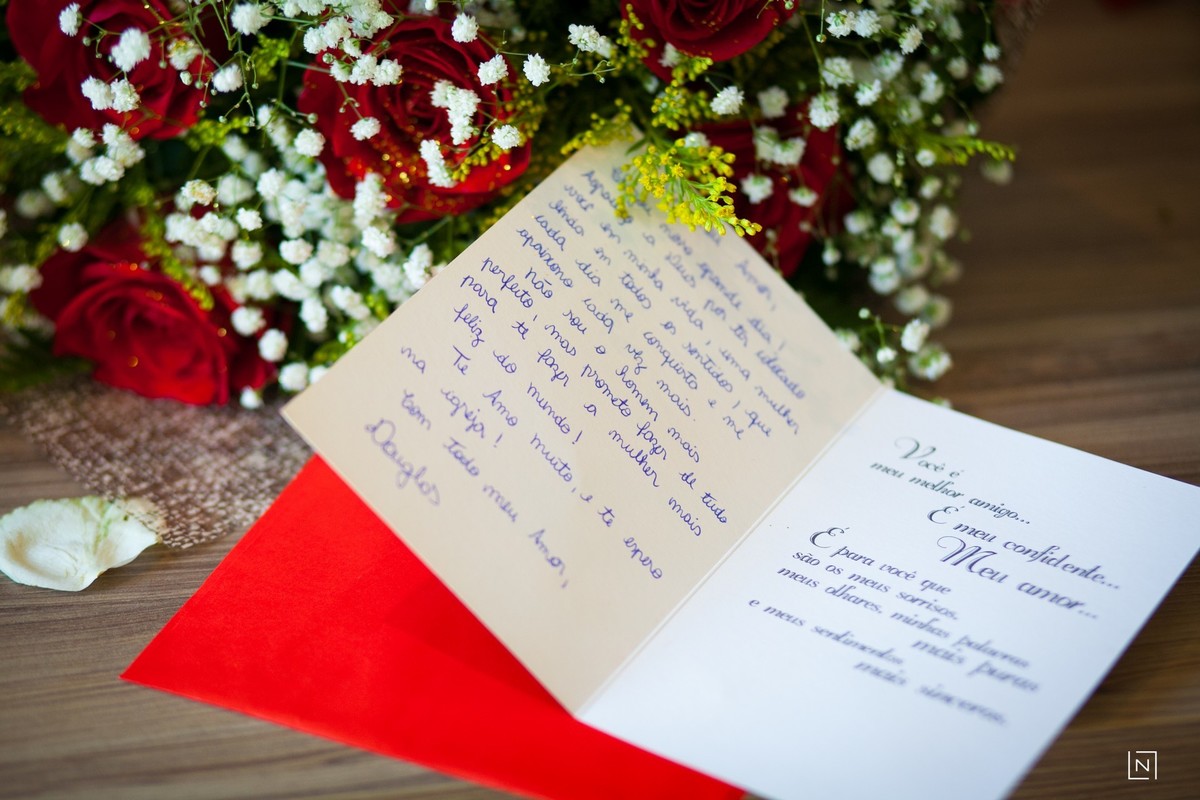 Amor,
nosso grande dia!
Agradeço a Deus por ter colocado
você em minha vida, uma mulher
linda em todos os sentidos, que
cada dia me conquista e me
apaixono cada vez mais.
Não sou o homem mais
perfeito, mas prometo fazer de tudo
para te fazer a mulher mais
feliz do mundo!
Te Amo muito, e te espero
na igreja!
Com todo meu Amor,
Douglas
Você é
meu melhor amigo...
É meu confidente...
Meu amor...
É para você que
são os meus sorrisos,
meus olhares, minhas palavras
mais puras
e meus sentimentos
mais sinceros.
N